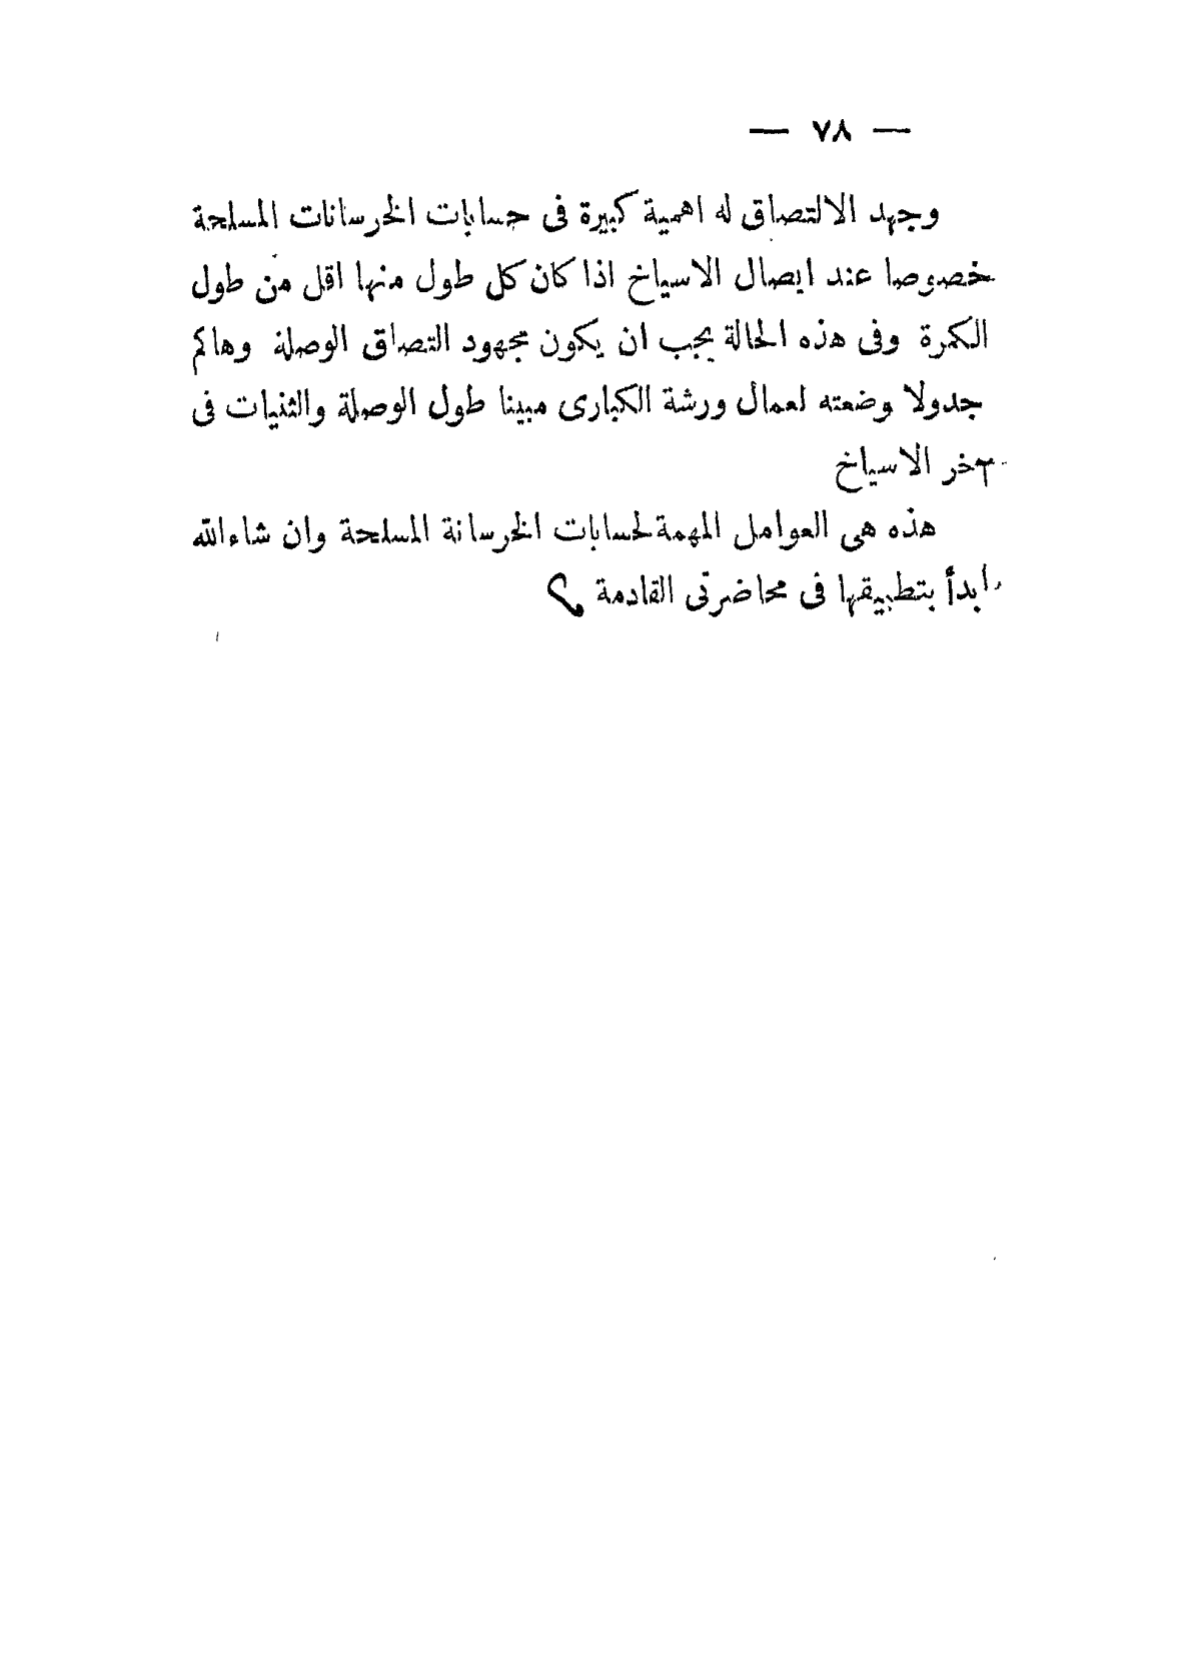 — ٧٨ —
وجهد الالتصاق له اهمية كبيرة فى حسابات الخرسانات المسلحة
خصوصا عند ايصال الاسياخ اذا كان كل طول منها اقل من طول
الكمرة وفى هذه الحالة يجب ان يكون مجهود التصاق الوصلة وهاكم
جدولا وضعته لعمال ورشة الكبارى مبينا طول الوصلة والثنيات فى
آخر الاسياخ
هذه هى العوامل المهمة لحسابات الخرسانة المسلحة وان شاء الله
ابدأ بتطبيقها فى محاضرتى القادمة